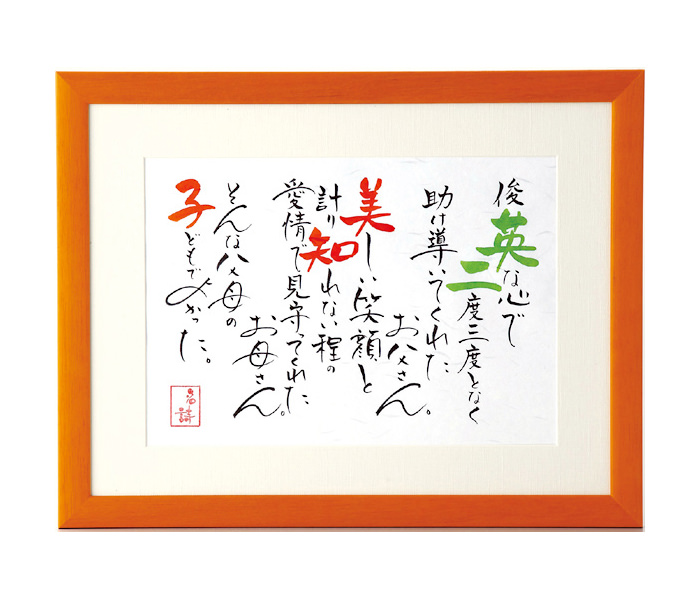 俊英な心で
二度三度となく
助け導いてくれた
お父さん。
美しい笑顔と
計り知れない程の
愛情で見守ってくれた
お母さん。
そんな父母の
子どもでよかった。
名詩